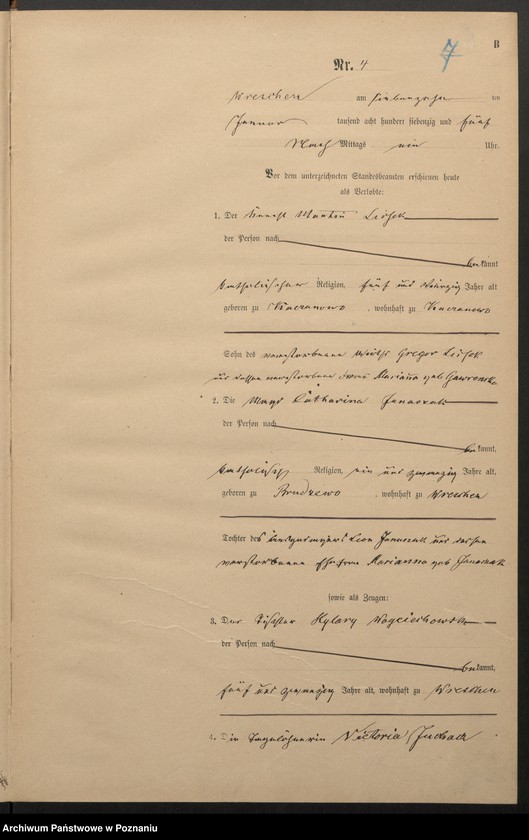 7 B
Nr. 4
Wreschen am siebenzehn ten
Januar tausend acht hundert siebenzig und fünf
Nach Mittags ein Uhr.
Vor dem unterzeichneten Standesbeamten erschienen heute
als Verlobte:
1. Der Knecht Martin
der Person nach
bekannt
katholischer Religion, fünf und Jahre alt
geboren zu , wohnhaft zu
Sohn des verstorbenen Wirths Gregor
und dessen verstorbene Frau Marianna geb Gawronska
2. Die Magd Catharina Janaszak
der Person nach
bekannt,
katholisch Religion, ein und zwanzig Jahre alt,
geboren zu Brudzewo , wohnhaft zu Wreschen
Tochter des Leon Janaszak und dessen
verstorbene Ehefrau Marianna geb
sowie als Zeugen:
3. Der Tischler Hylary Woyciechowski
der Person nach
bekannt,
fünf und zwanzig Jahre alt, wohnhaft zu Wreschen
4. Die Tagelöhnerin Victoria
Archiwum Państwowe w Poznaniu